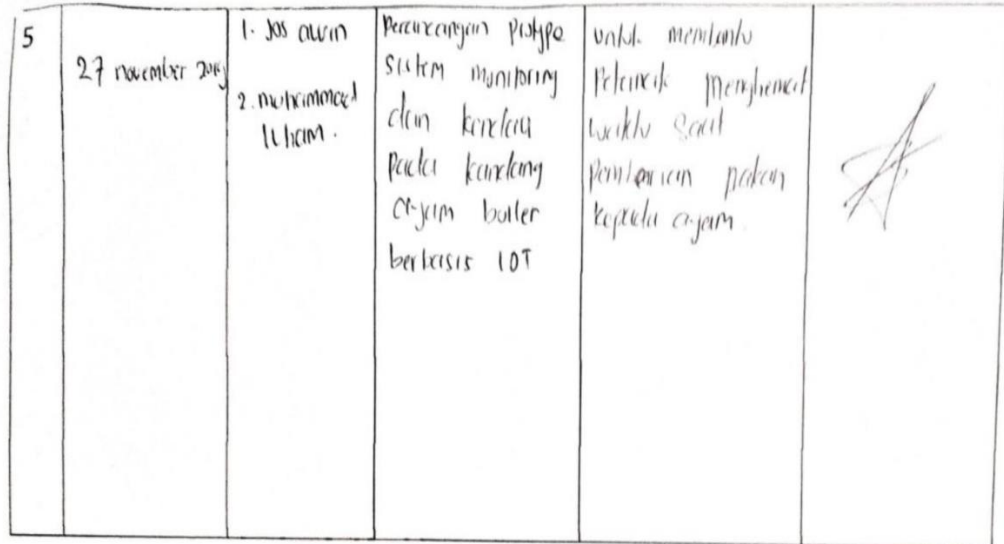 5
27 november
1. Jos alwin
2. muhammad
Ilham.
Perancangan Protype
sistem monitoring
dan kendali
pada kandang
ayam boiler
berbasis IOT
untuk membantu
Peternak menghemat
waktu saat
pemberian pakan
kepada ayam.